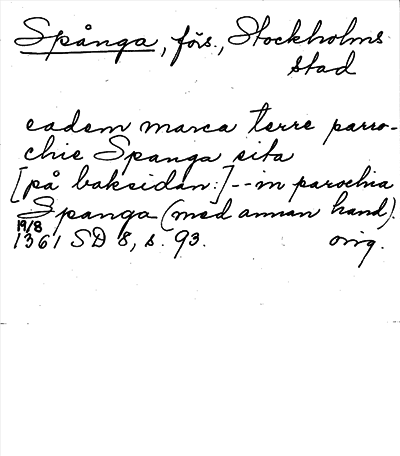 Spånga, förs., Stockholms
stad
eadem marca terre parro-
chie Spanga sita
[på baksidan:] -- in parochia
Spanga (med annan hand).
19/8
1361 SD 8, s. 93. orig.